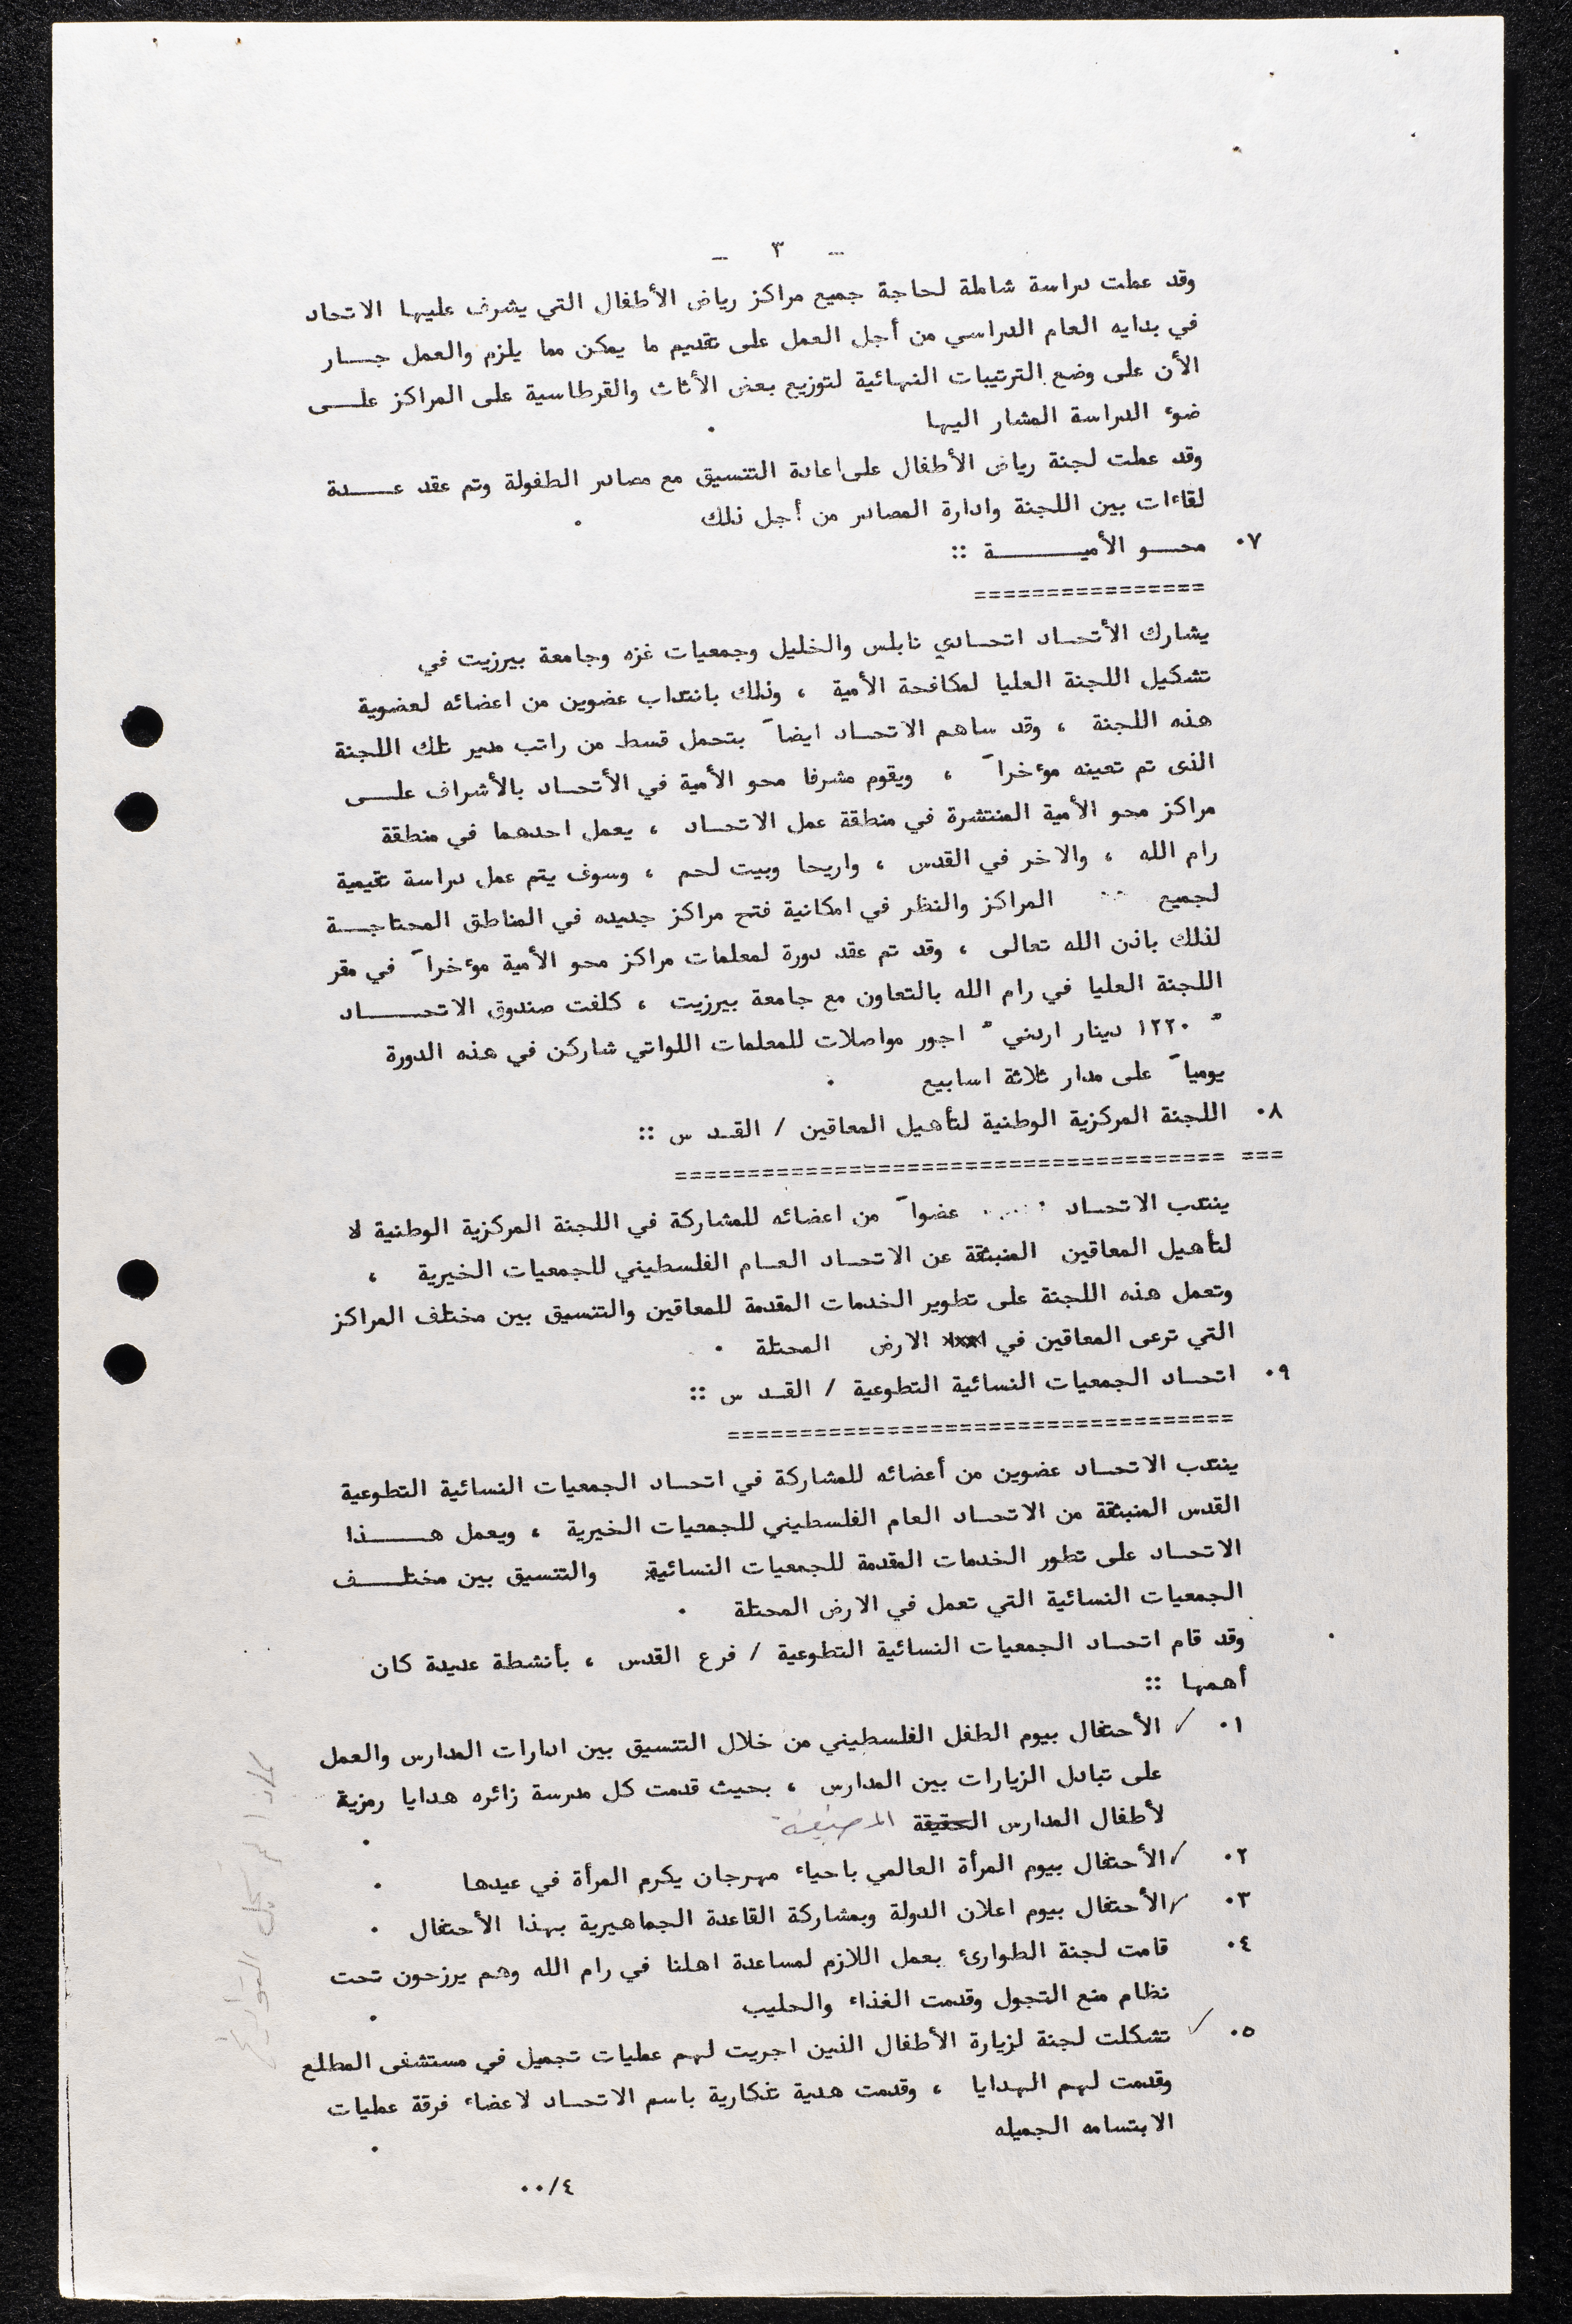 - ٣ -
وقد عملت دراسة شاملة لحاجة جميع مراكز رياض الأطفال التي يشرف عليها الاتحاد
في بدايه العام الدراسي من أجل العمل على تقديم ما يمكن مما يلزم والعمل جـــار
الأن على وضع الترتيبات النهائية لتوزيع بعض الأثاث والقرطاسية على المراكز علـــى
ضوء الدراسة المشار اليها .
وقد عملت لجنة رياض الأطفال على اعادة التنسيق مع مصادر الطفولة وتم عقد عـــدة
لقاءات بين اللجنة وادارة المصادر من أجل ذلك .
٠٧ محـــو الأميـــــــة ::
================
يشارك الأتحــاد اتحــادي نابلس والخليل وجمعيات غزه وجامعة بيرزيت في
تشكيل اللجنة العليا لمكافحة الأمية ، وذلك بانتداب عضوين من اعضائه لعضوية
هذه اللجنة ، وقد ساهم الاتحــاد ايضاً بتحمل قسط من راتب مدير تلك اللجنة
الذى تم تعينه موءخراً ، ويقوم مشرفا محو الأمية في الأتحــاد بالأشراف علـــى
مراكز محو الأمية المنتشرة في منطقة عمل الاتحــاد ، يعمل احدهما في منطقة
رام الله ، والاخر في القدس ، واريحا وبيت لحم ، وسوف يتم عمل دراسة تقيمية
لجميع المراكز والنظر في امكانية فتح مراكز جديده في المناطق المحتاجـــة
لذلك باذن الله تعالى ، وقد تم عقد دورة لمعلمات مراكز محو الأمية موءخراً في مقر
اللجنة العليا في رام الله بالتعاون مع جامعة بيرزيت ، كلفت صندوق الاتحـــــاد
" ١٢٢٠ دينار اردني " اجور مواصلات للمعلمات اللواتي شاركن في هذه الدورة
يومياً على مدار ثلاثة اسابيع .
٠٨ اللجنة المركزية الوطنية لتأهيل المعاقين / القــد س ::
=== ======================================
ينتدب الاتحــاد عضواً من اعضائه للمشاركة في اللجنة المركزية الوطنية لا
لتأهيل المعاقين المنبثقة عن الاتحــاد العــام الفلسطيني للجمعيات الخيرية ،
وتعمل هذه اللجنة على تطوير الخدمات المقدمة للمعاقين والتنسيق بين مختلف المراكز
التي ترعى المعاقين في الارض المحتلة .
٠٩ اتحــاد الجمعيات النسائية التطوعية / القــد س ::
===================================
ينتدب الاتحــاد عضوين من أعضائه للمشاركة في اتحــاد الجمعيات النسائية التطوعية
القدس المنبثقة من الاتحــاد العام الفلسطيني للجمعيات الخيرية ، ويعمل هـــــذا
الاتحــاد على تطور الخدمات المقدمة للجمعيات النسائية والتنسيق بين مختلـــف
الجمعيات النسائية التي تعمل في الارض المحتلة .
وقد قام اتحــاد الجمعيات النسائية التطوعية / فرع القدس ، بأنشطة عديدة كان
أهمها ::
٠١ ✓ الأحتفال بيوم الطفل الفلسطيني من خلال التنسيق بين ادارات المدارس والعمل
على تبادل الزيارات بين المدارس ، بحيث قدمت كل مدرسة زائره هدايا رمزية
لأطفال المدارس الحقيقة المضيفة .
٠٢ ✓ الأحتفال بيوم المرأة العالمي باحياء مهرجان يكرم المرأة في عيدها .
٠٣ ✓ الأحتفال بيوم اعلان الدولة وبمشاركة القاعدة الجماهيرية بهذا الأحتفال .
٠٤ قامت لجنة الطوارئ بعمل اللازم لمساعدة اهلنا في رام الله وهم يرزحون تحت
نظام منع التجول وقدمت الغذاء والحليب .
٠٥ ✓ تشكلت لجنة لزيارة الأطفال الذين اجريت لهم عمليات تجميل في مستشفى المطلع
وقدمت لهم الهدايا ، وقدمت هدية تذكارية باسم الاتحــاد لاعضاء فرقة عمليات
الابتسامه الجميله .
٠٠/٤